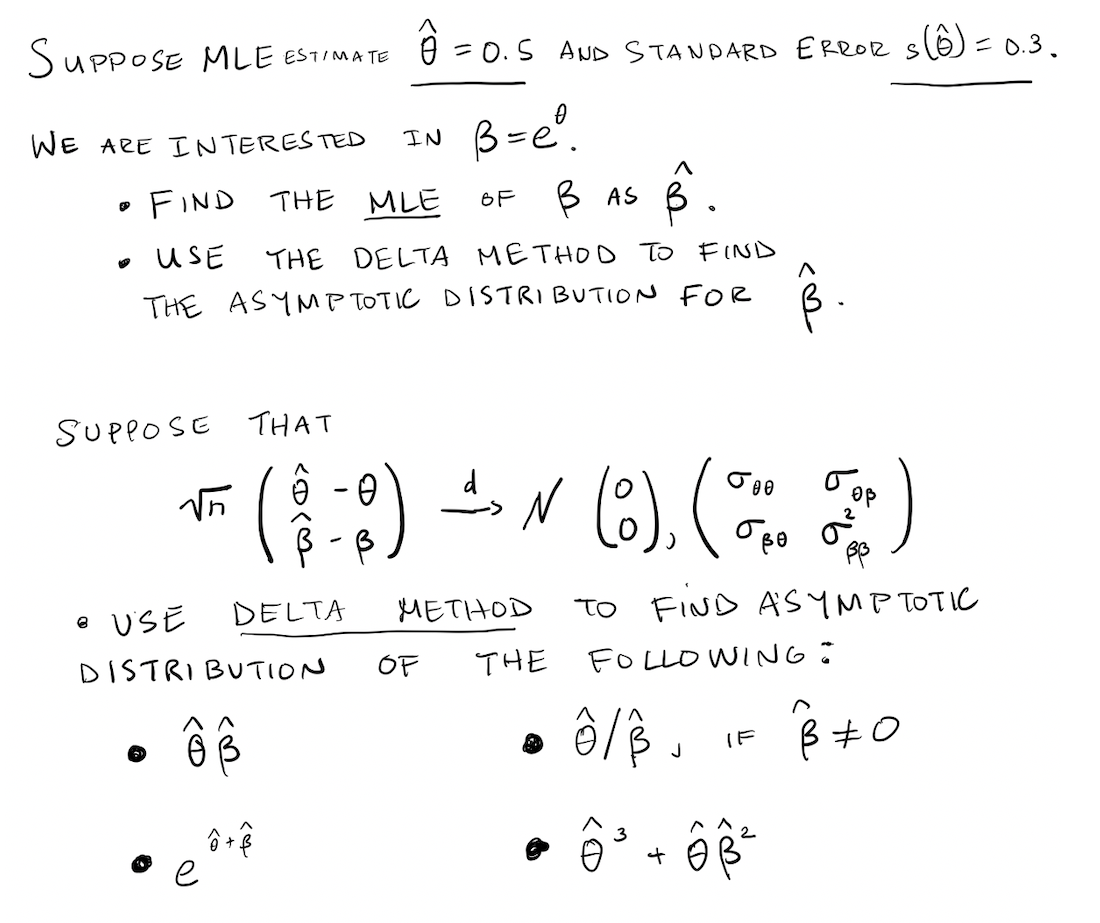 SUPPOSE MLE ESTIMATE θ̂ = 0.5 AND STANDARD ERROR s(θ̂) = 0.3.
WE ARE INTERESTED IN β = e^θ.
• FIND THE MLE OF β AS β̂.
• USE THE DELTA METHOD TO FIND
THE ASYMPTOTIC DISTRIBUTION FOR β̂.
SUPPOSE THAT
√n (θ̂ - θ; β̂ - β) →d N (0; 0), (σ_θθ σ_θβ; σ_βθ σ²_ββ)
• USE DELTA METHOD TO FIND ASYMPTOTIC
DISTRIBUTION OF THE FOLLOWING:
• θ̂β̂ • θ̂/β̂, IF β̂ ≠ 0
• e^(θ̂+β̂) • θ̂³ + θ̂β̂²